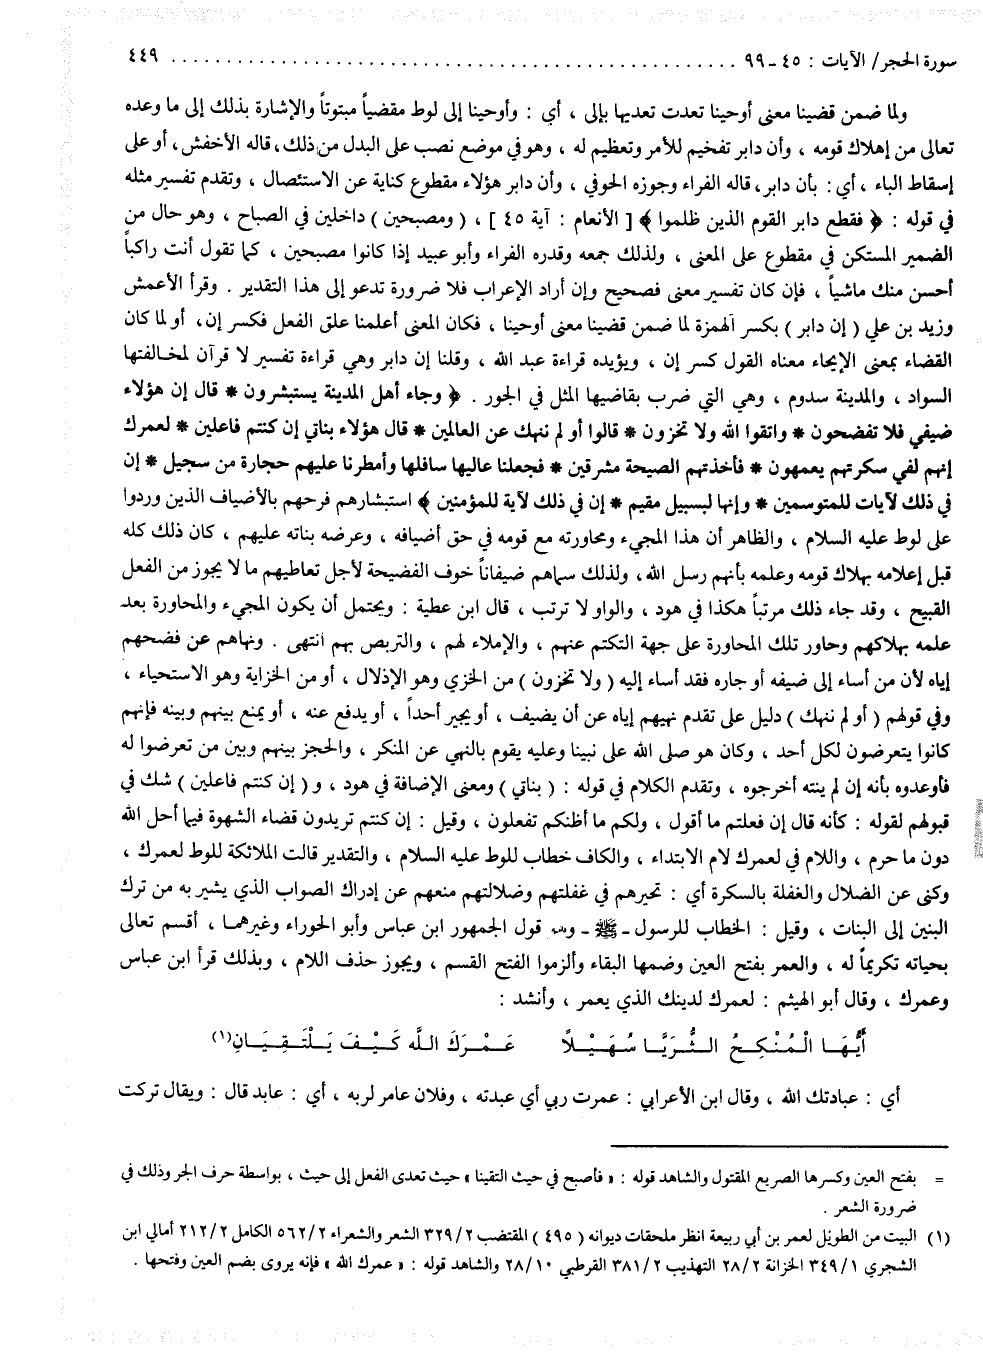 سورة الحجر/ الآيات : ٤٥ ـ ٩٩ ................................................ ٤٤٩
ولما ضمن قضينا معنى أوحينا تعدت تعديها بإلى ، أي : وأوحينا إلى لوط مقضياً مبتوتاً والإشارة بذلك إلى ما وعده
تعالى من إهلاك قومه ، وأن دابر تفخيم للأمر وتعظيم له ، وهو في موضع نصب على البدل من ذلك، قاله الأخفش، أو على
إسقاط الباء ، أي : بأن دابر، قاله الفراء وجوزه الحوفي ، وأن دابر هؤلاء مقطوع كناية عن الاستئصال ، وتقدم تفسير مثله
في قوله : ﴿ فقطع دابر القوم الذين ظلموا ﴾ [ الأنعام : آية ٤٥ ] ، ( ومصبحين ) داخلين في الصباح ، وهو حال من
الضمير المستكن في مقطوع على المعنى ، ولذلك جمعه وقدره الفراء وأبو عبيد إذا كانوا مصبحين ، كما تقول أنت راكباً
أحسن منك ماشياً ، فإن كان تفسير معنى فصحيح وإن أراد الإعراب فلا ضرورة تدعو إلى هذا التقدير . وقرأ الأعمش
وزيد بن علي ( إن دابر ) بكسر الهمزة لما ضمن قضينا معنى أوحينا ، فكان المعنى أعلمنا علق الفعل فكسر إن، أو لما كان
القضاء بمعنى الإيحاء معناه القول كسر إن ، ويؤيده قراءة عبد الله ، وقلنا إن دابر وهي قراءة تفسير لا قرآن لمخالفتها
السواد ، والمدينة سدوم ، وهي التي ضرب بقاضيها المثل في الجور . ﴿ وجاء أهل المدينة يستبشرون * قال إن هؤلاء
ضيفي فلا تفضحون * واتقوا الله ولا تخزون * قالوا أو لم ننهك عن العالمين * قال هؤلاء بناتي إن كنتم فاعلين * لعمرك
إنهم لفي سكرتهم يعمهون * فأخذتهم الصيحة مشرقين * فجعلنا عاليها سافلها وأمطرنا عليهم حجارة من سجيل * إن
في ذلك لآيات للمتوسمين * وإنها لبسبيل مقيم * إن في ذلك لآية للمؤمنين ﴾ استبشارهم فرحهم بالأضياف الذين وردوا
على لوط عليه السلام ، والظاهر أن هذا المجيء ومحاورته مع قومه في حق أضيافه ، وعرضه بناته عليهم ، كان ذلك كله
قبل إعلامه بهلاك قومه وعلمه بأنهم رسل الله، ولذلك سماهم ضيفاناً خوف الفضيحة لأجل تعاطيهم ما لا يجوز من الفعل
القبيح ، وقد جاء ذلك مرتباً هكذا في هود ، والواو لا ترتب ، قال ابن عطية : ويحتمل أن يكون المجيء والمحاورة بعد
علمه بهلاكهم وحاور تلك المحاورة على جهة التكتم عنهم ، والإملاء لهم ، والتربص بهم انتهى . ونهاهم عن فضحهم
إياه لأن من أساء إلى ضيفه أو جاره فقد أساء إليه ( ولا تخزون ) من الخزي وهو الإذلال ، أو من الخزاية وهو الاستحياء ،
وفي قولهم ( أو لم ننهك ) دليل على تقدم نهيهم إياه عن أن يضيف ، أو يجير أحداً ، أو يدفع عنه ، أو يمنع بينهم وبينه فإنهم
كانوا يتعرضون لكل أحد ، وكان هو صلى الله على نبينا وعليه يقوم بالنهي عن المنكر ، والحجز بينهم وبين من تعرضوا له
فأوعدوه بأنه إن لم ينته أخرجوه ، وتقدم الكلام في قوله : ( بناتي ) ومعنى الإضافة في هود ، و ( إن كنتم فاعلين ) شك في
قبولهم لقوله : كأنه قال إن فعلتم ما أقول ، ولكم ما أظنكم تفعلون ، وقيل : إن كنتم تريدون قضاء الشهوة فيما أحل الله
دون ما حرم ، واللام في لعمرك لام الابتداء ، والكاف خطاب للوط عليه السلام ، والتقدير قالت الملائكة للوط لعمرك ،
وكنى عن الضلال والغفلة بالسكرة أي : تحيرهم في غفلتهم وضلالتهم منعهم عن إدراك الصواب الذي يشير به من ترك
البنين إلى البنات ، وقيل : الخطاب للرسول ـ ﷺ ـ وهو قول الجمهور ابن عباس وأبو الحوراء وغيرهما ، أقسم تعالى
بحياته تكريماً له ، والعمر بفتح العين وضمها البقاء وألزموا الفتح القسم ، ويجوز حذف اللام ، وبذلك قرأ ابن عباس
وعمرك ، وقال أبو الهيثم : لعمرك لدينك الذي يعمر ، وأنشد :
أَيُّهَا الْمُنْكِحُ الثُّرَيَّا سُهَيْلاً عَمْرَكَ اللَّه كَيْفَ يَلْتَقِيَانِ(١)
أي : عبادتك الله ، وقال ابن الأعرابي : عمرت ربي أي عبدته ، وفلان عامر لربه ، أي : عابد قال : ويقال تركت
= بفتح العين وكسرها الصريع المقتول والشاهد قوله : « فأصبح في حيث التقينا » حيث تعدى الفعل إلى حيث ، بواسطة حرف الجر وذلك في
ضرورة الشعر .
(١) البيت من الطويل لعمر بن أبي ربيعة انظر ملحقات ديوانه ( ٤٩٥ ) المقتضب ٣٢٩/٢ الشعر والشعراء ٥٦٢/٢ الكامل ٢١٢/٢ أمالي ابن
الشجري ٣٤٩/١ الخزانة ٢٨/٢ التهذيب ٣٨١/٢ القرطبي ٢٨/١٠ والشاهد قوله : « عمرك الله » فإنه يروى بضم العين وفتحها .